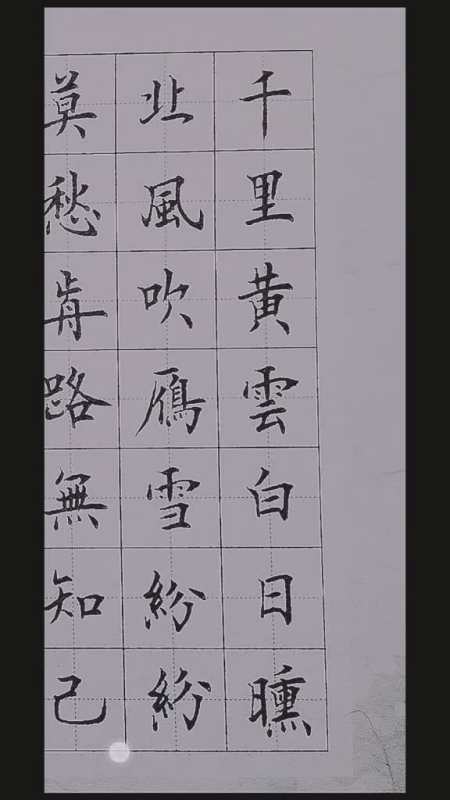 千里黄雲白日曛
北風吹鴈雪紛紛
莫愁歬路無知己